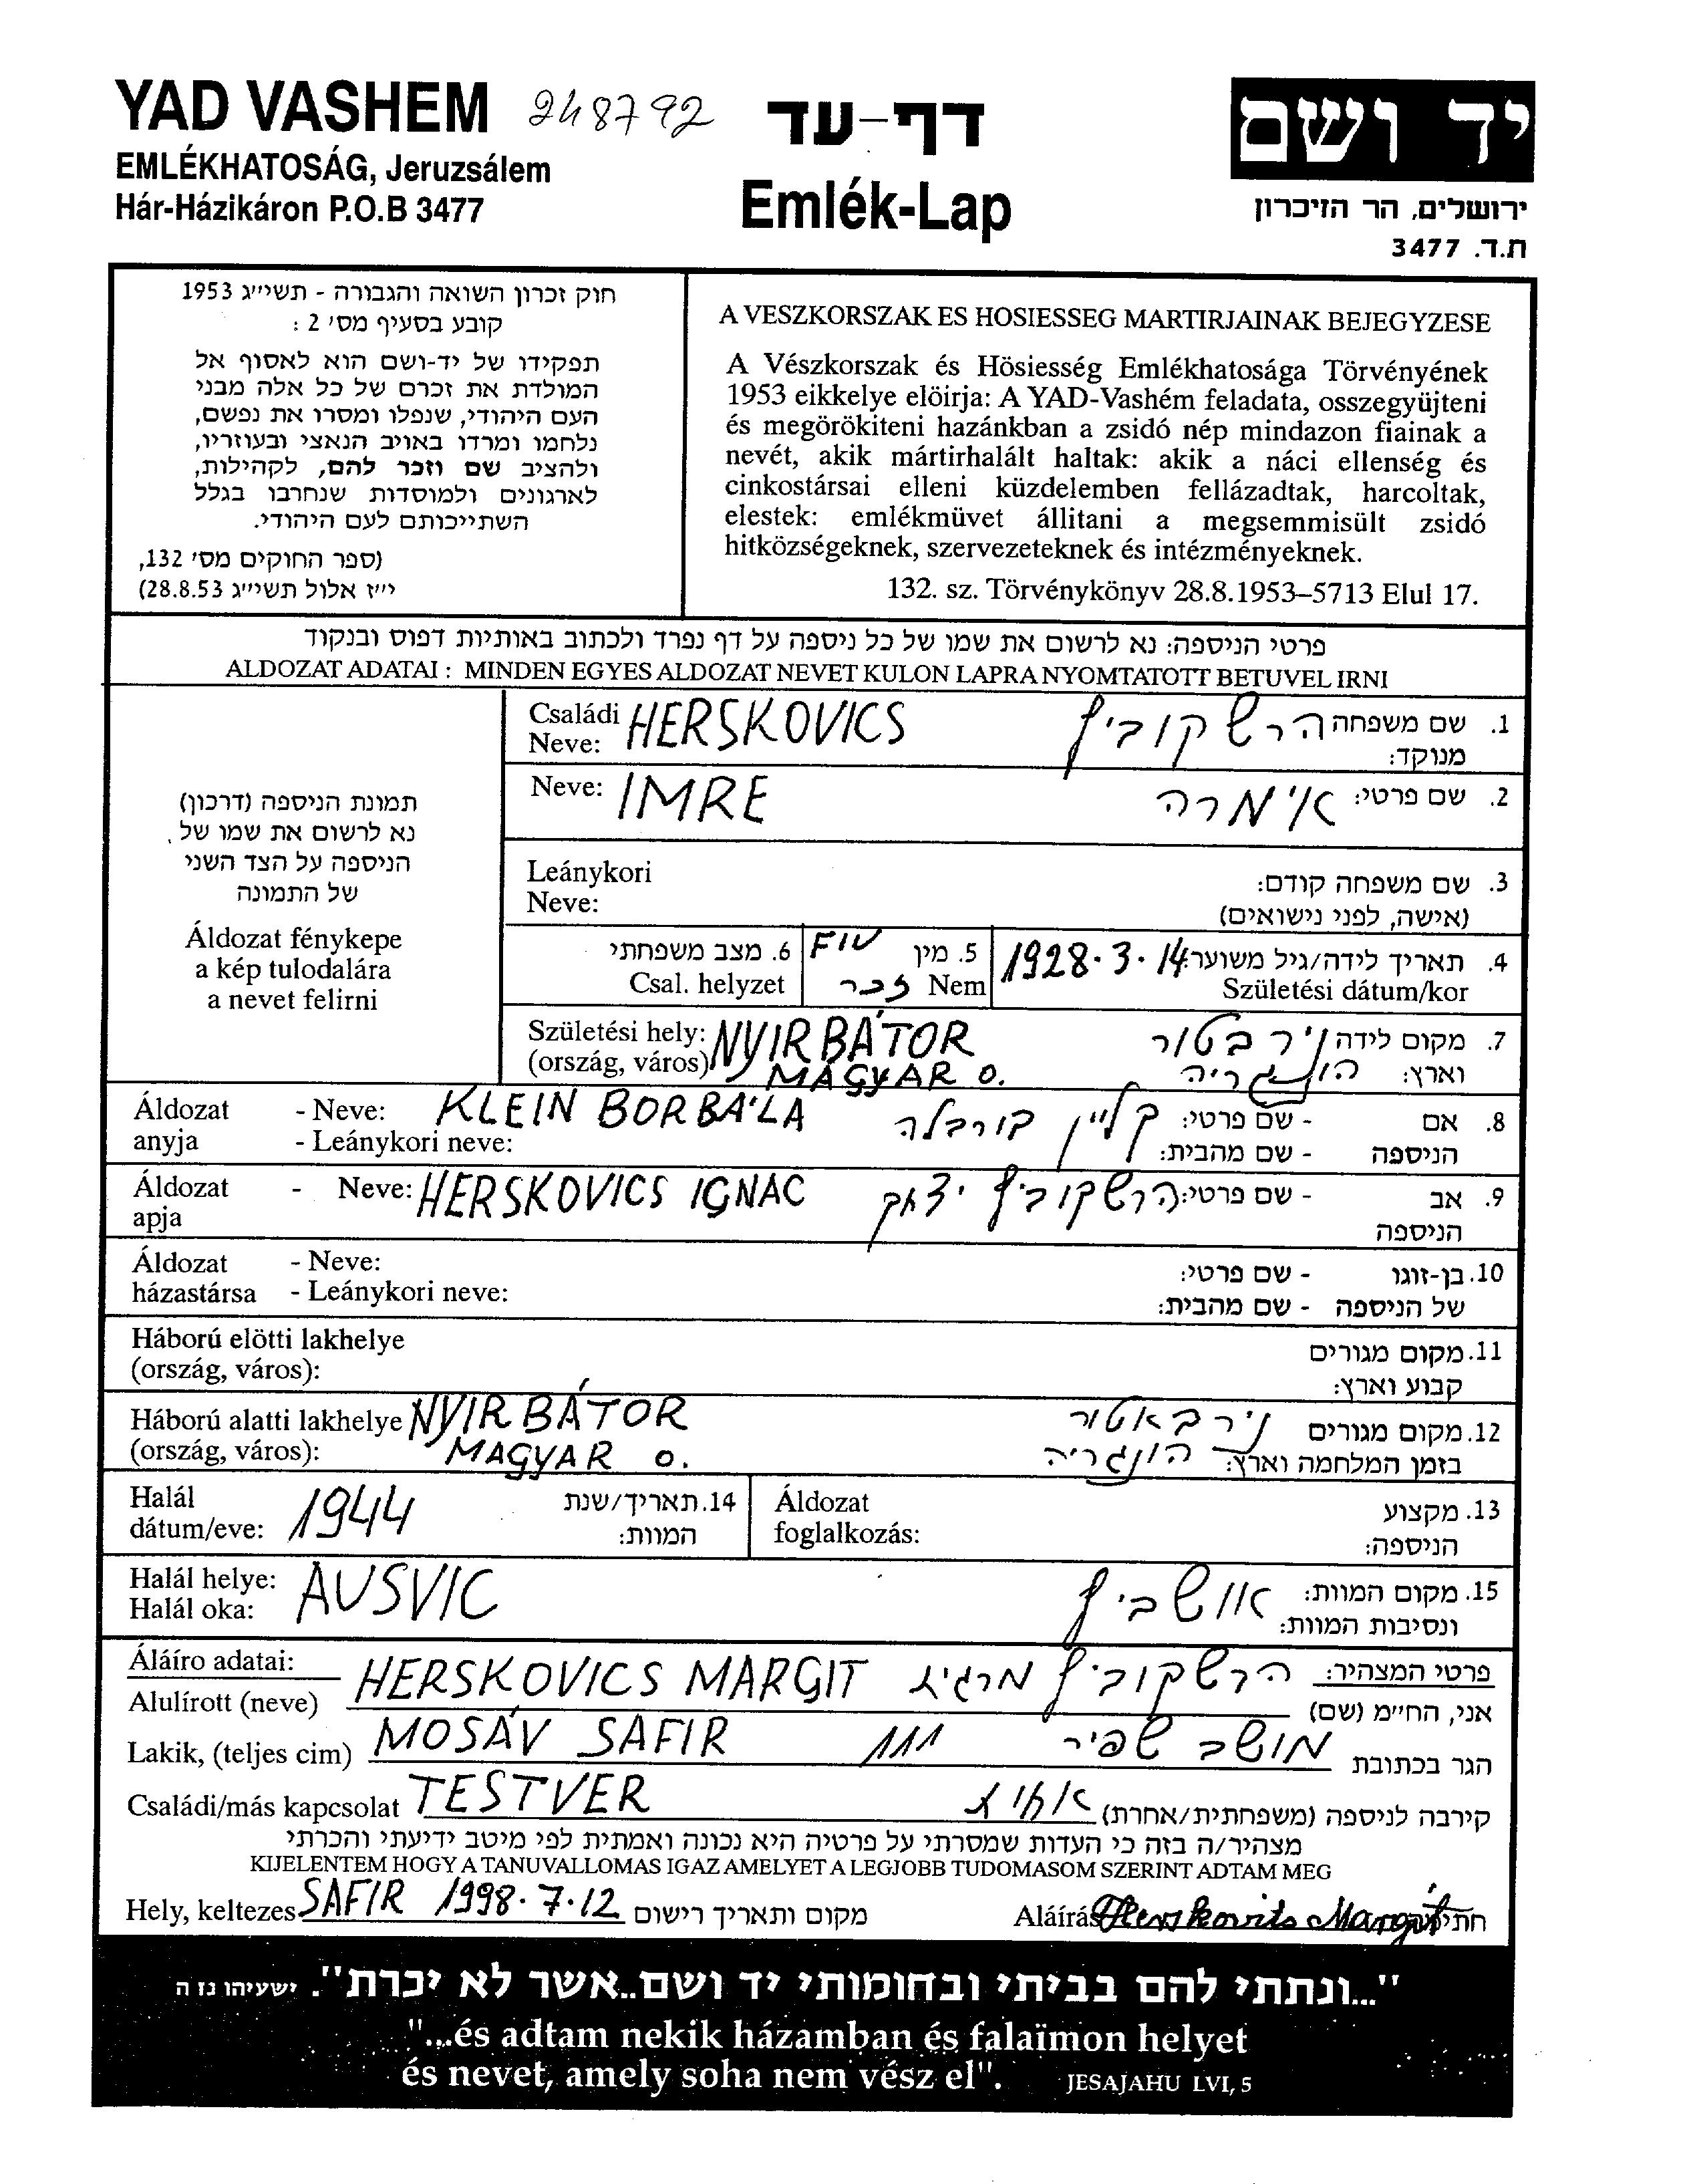 YAD VASHEM 248792 דף-עד יד ושם
EMLÉKHATOSÁG, Jeruzsálem
Hár-Házikáron P.O.B 3477
Emlék-Lap
ירושלים, הר הזיכרון
ת.ד. 3477
חוק זכרון השואה והגבורה - תשי״ג 1953
קובע בסעיף מס׳ 2 :
תפקידו של יד-ושם הוא לאסוף אל
המולדת את זכרם של כל אלה מבני
העם היהודי, שנפלו ומסרו את נפשם,
נלחמו ומרדו באויב הנאצי ובעוזריו,
ולהציב שם וזכר להם, לקהילות,
לארגונים ולמוסדות שנחרבו בגלל
השתייכותם לעם היהודי.
(ספר החוקים מס׳ 132,
י״ז אלול תשי״ג 28.8.53)
A VESZKORSZAK ES HOSIESSEG MARTIRJAINAK BEJEGYZESE
A Vészkorszak és Hösiesség Emlékhatosága Törvényének
1953 eikkelye elöirja: A YAD-Vashém feladata, osszegyüjteni
és megörökiteni hazánkban a zsidó nép mindazon fiainak a
nevét, akik mártirhalált haltak: akik a náci ellenség és
cinkostársai elleni küzdelemben fellázadtak, harcoltak,
elestek: emlékmüvet állitani a megsemmisült zsidó
hitközségeknek, szervezeteknek és intézményeknek.
132. sz. Törvénykönyv 28.8.1953–5713 Elul 17.
פרטי הניספה: נא לרשום את שמו של כל ניספה על דף נפרד ולכתוב באותיות דפוס ובנקוד
ALDOZAT ADATAI : MINDEN EGYES ALDOZAT NEVET KULON LAPRA NYOMTATOTT BETUVEL IRNI
תמונת הניספה (דרכון)
נא לרשום את שמו של
הניספה על הצד השני
של התמונה
Áldozat fénykepe
a kép tulodalára
a nevet felirni
Családi HERSKOVICS הרשקוביץ 1. שם משפחה
Neve: מנוקד:
Neve: IMRE אימרה 2. שם פרטי:
Leánykori 3. שם משפחה קודם:
Neve: (אישה, לפני נישואים)
6. מצב משפחתי FIU 5. מין 1928.3.14 4. תאריך לידה/גיל משוער:
Csal. helyzet זכר Nem Születési dátum/kor
Születési hely: NYIRBÁTOR נירבטור 7. מקום לידה
(ország, város) MAGYAR O. הונגריה וארץ:
Áldozat - Neve: KLEIN BORBÁLA קליין בורבלה - שם פרטי: 8. אם
anyja - Leánykori neve: - שם מהבית: הניספה
Áldozat - Neve: HERSKOVICS IGNAC הרשקוביץ יצחק - שם פרטי: 9. אב
apja הניספה
Áldozat - Neve: - שם פרטי: 10. בן-זוגו
házastársa - Leánykori neve: - שם מהבית: של הניספה
Háború elötti lakhelye 11. מקום מגורים
(ország, város): קבוע וארץ:
Háború alatti lakhelye NYIRBÁTOR נירבאטור 12. מקום מגורים
(ország, város): MAGYAR O. הונגריה בזמן המלחמה וארץ:
Halál 1944 14. תאריך/שנת Áldozat 13. מקצוע
dátum/eve: המוות: foglalkozás: הניספה:
Halál helye: AUSVIC אוושביץ 15. מקום המוות:
Halál oka: ונסיבות המוות:
Áláíro adatai: פרטי המצהיר:
Alulírott (neve) HERSKOVICS MARGIT הרשקוביץ מרגית אני, החי״מ (שם)
Lakik, (teljes cim) MOSÁV SAFIR 111 מושב שפיר הגר בכתובת
Családi/más kapcsolat TESTVER אחות קירבה לניספה (משפחתית/אחרת)
מצהיר/ה בזה כי העדות שמסרתי על פרטיה היא נכונה ואמתית לפי מיטב ידיעתי והכרתי
KIJELENTEM HOGY A TANUVALLOMAS IGAZ AMELYET A LEGJOBB TUDOMASOM SZERINT ADTAM MEG
Hely, keltezes SAFIR 1998.7.12 מקום ותאריך רישום Aláírás Herskovits Margit חתימה
"...ונתתי להם בביתי ובחומותי יד ושם..אשר לא יכרת". ישעיהו נז ה
"...és adtam nekik házamban és falaïmon helyet
és nevet, amely soha nem vész el". JESAJAHU LVI, 5